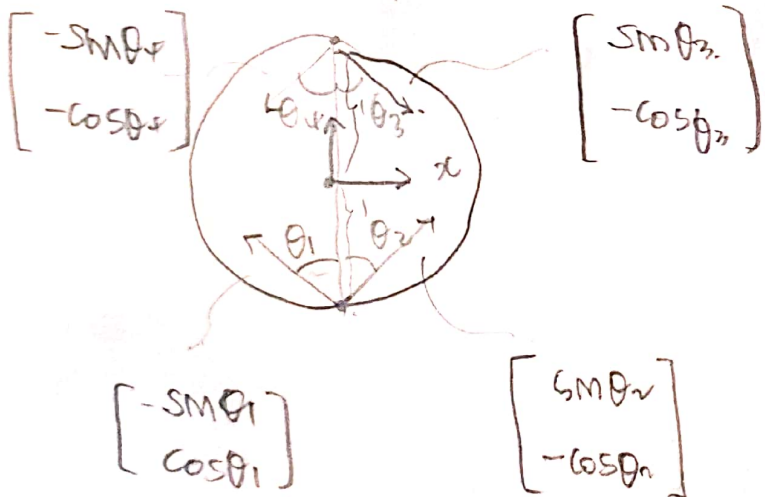 -sinθ4
-cosθ4
sinθ3
-cosθ3
θ4
θ3
x
θ1
θ2
-sinθ1
cosθ1
sinθ2
-cosθ2